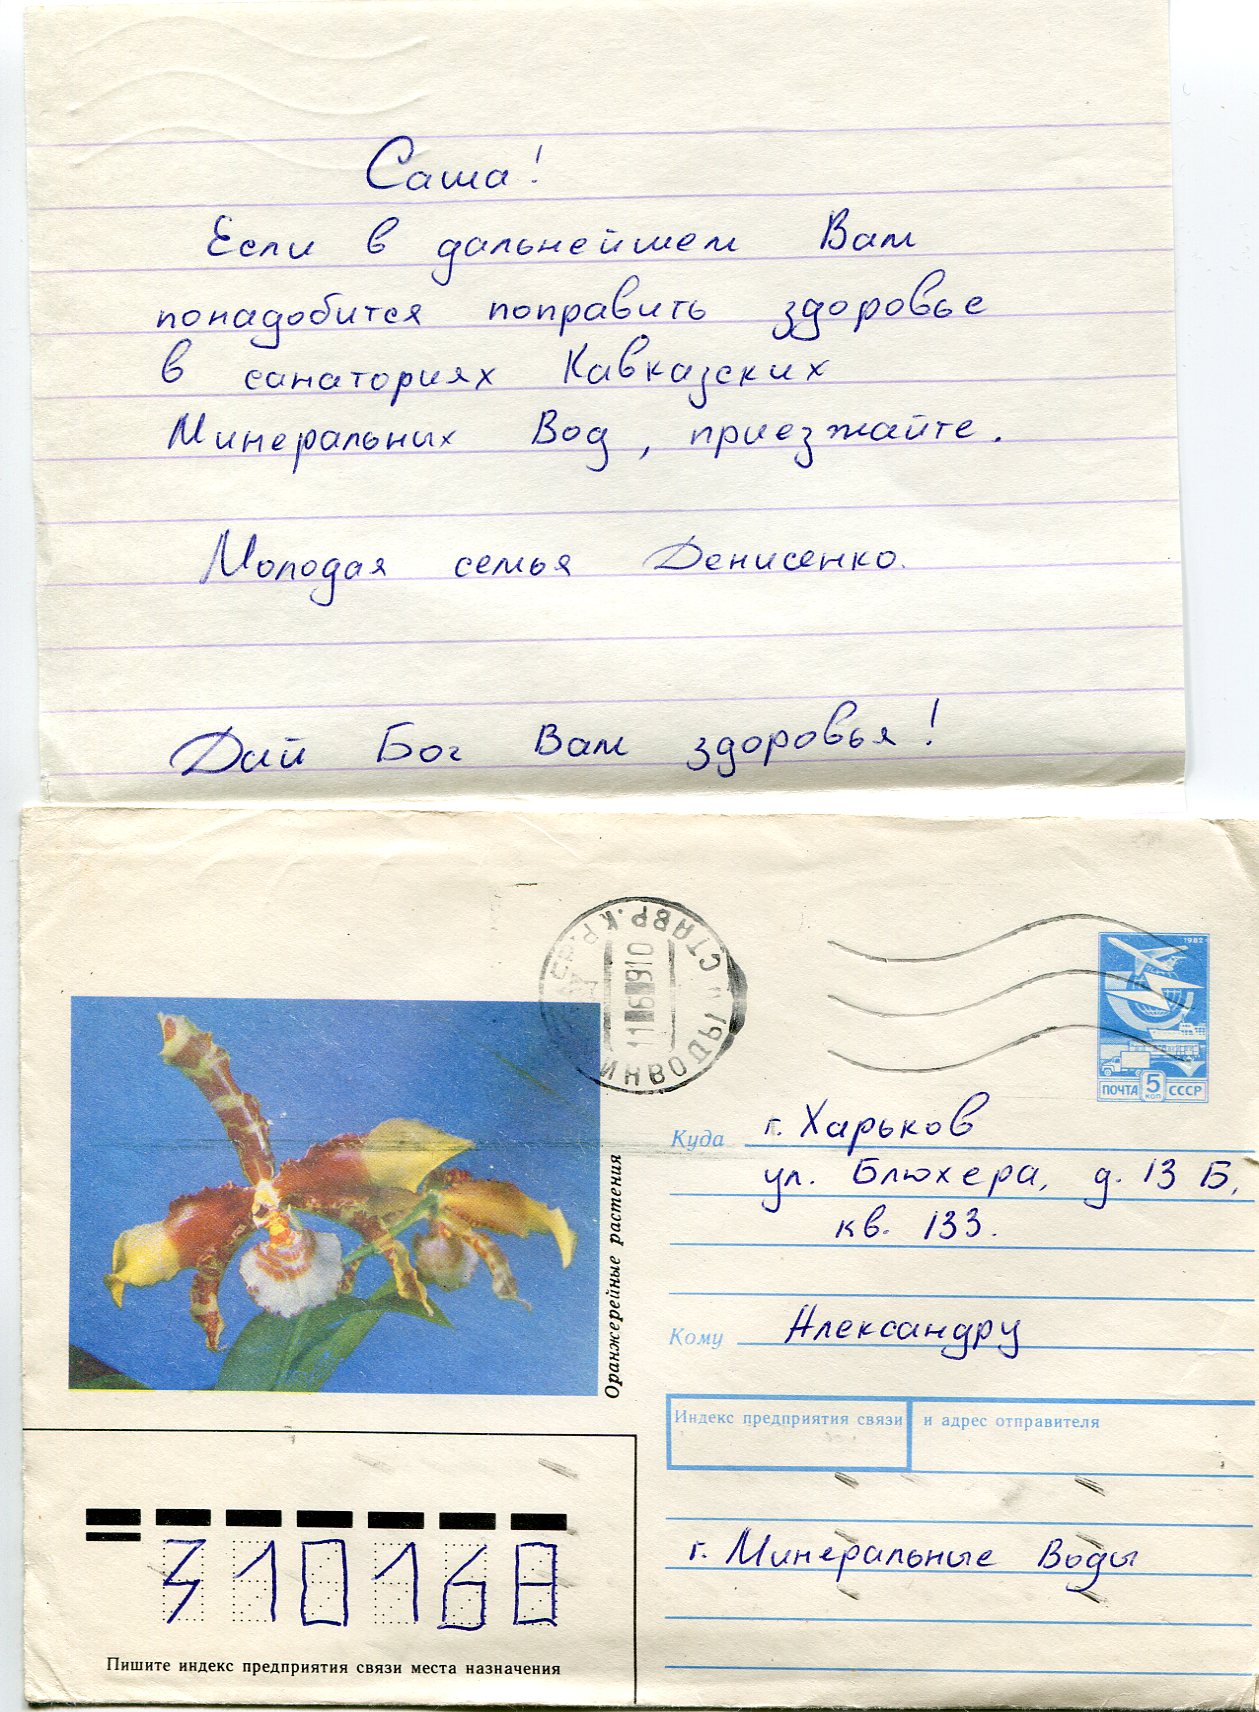 Саша!
Если в дальнейшем Вам
понадобится поправить здоровье
в санаториях Кавказских
Минеральных Вод, приезжайте.
Молодая семья Денисенко.
Дай Бог Вам здоровья!
СТАВР. КР.
11 6 91 10
ИНВОДЫ
1982
ПОЧТА 5 КОП СССР
Оранжерейные растения
Куда г. Харьков
ул. Блюхера, д. 13 Б,
кв. 133.
Кому Александру
Индекс предприятия связи и адрес отправителя
г. Минеральные Воды
310168
Пишите индекс предприятия связи места назначения